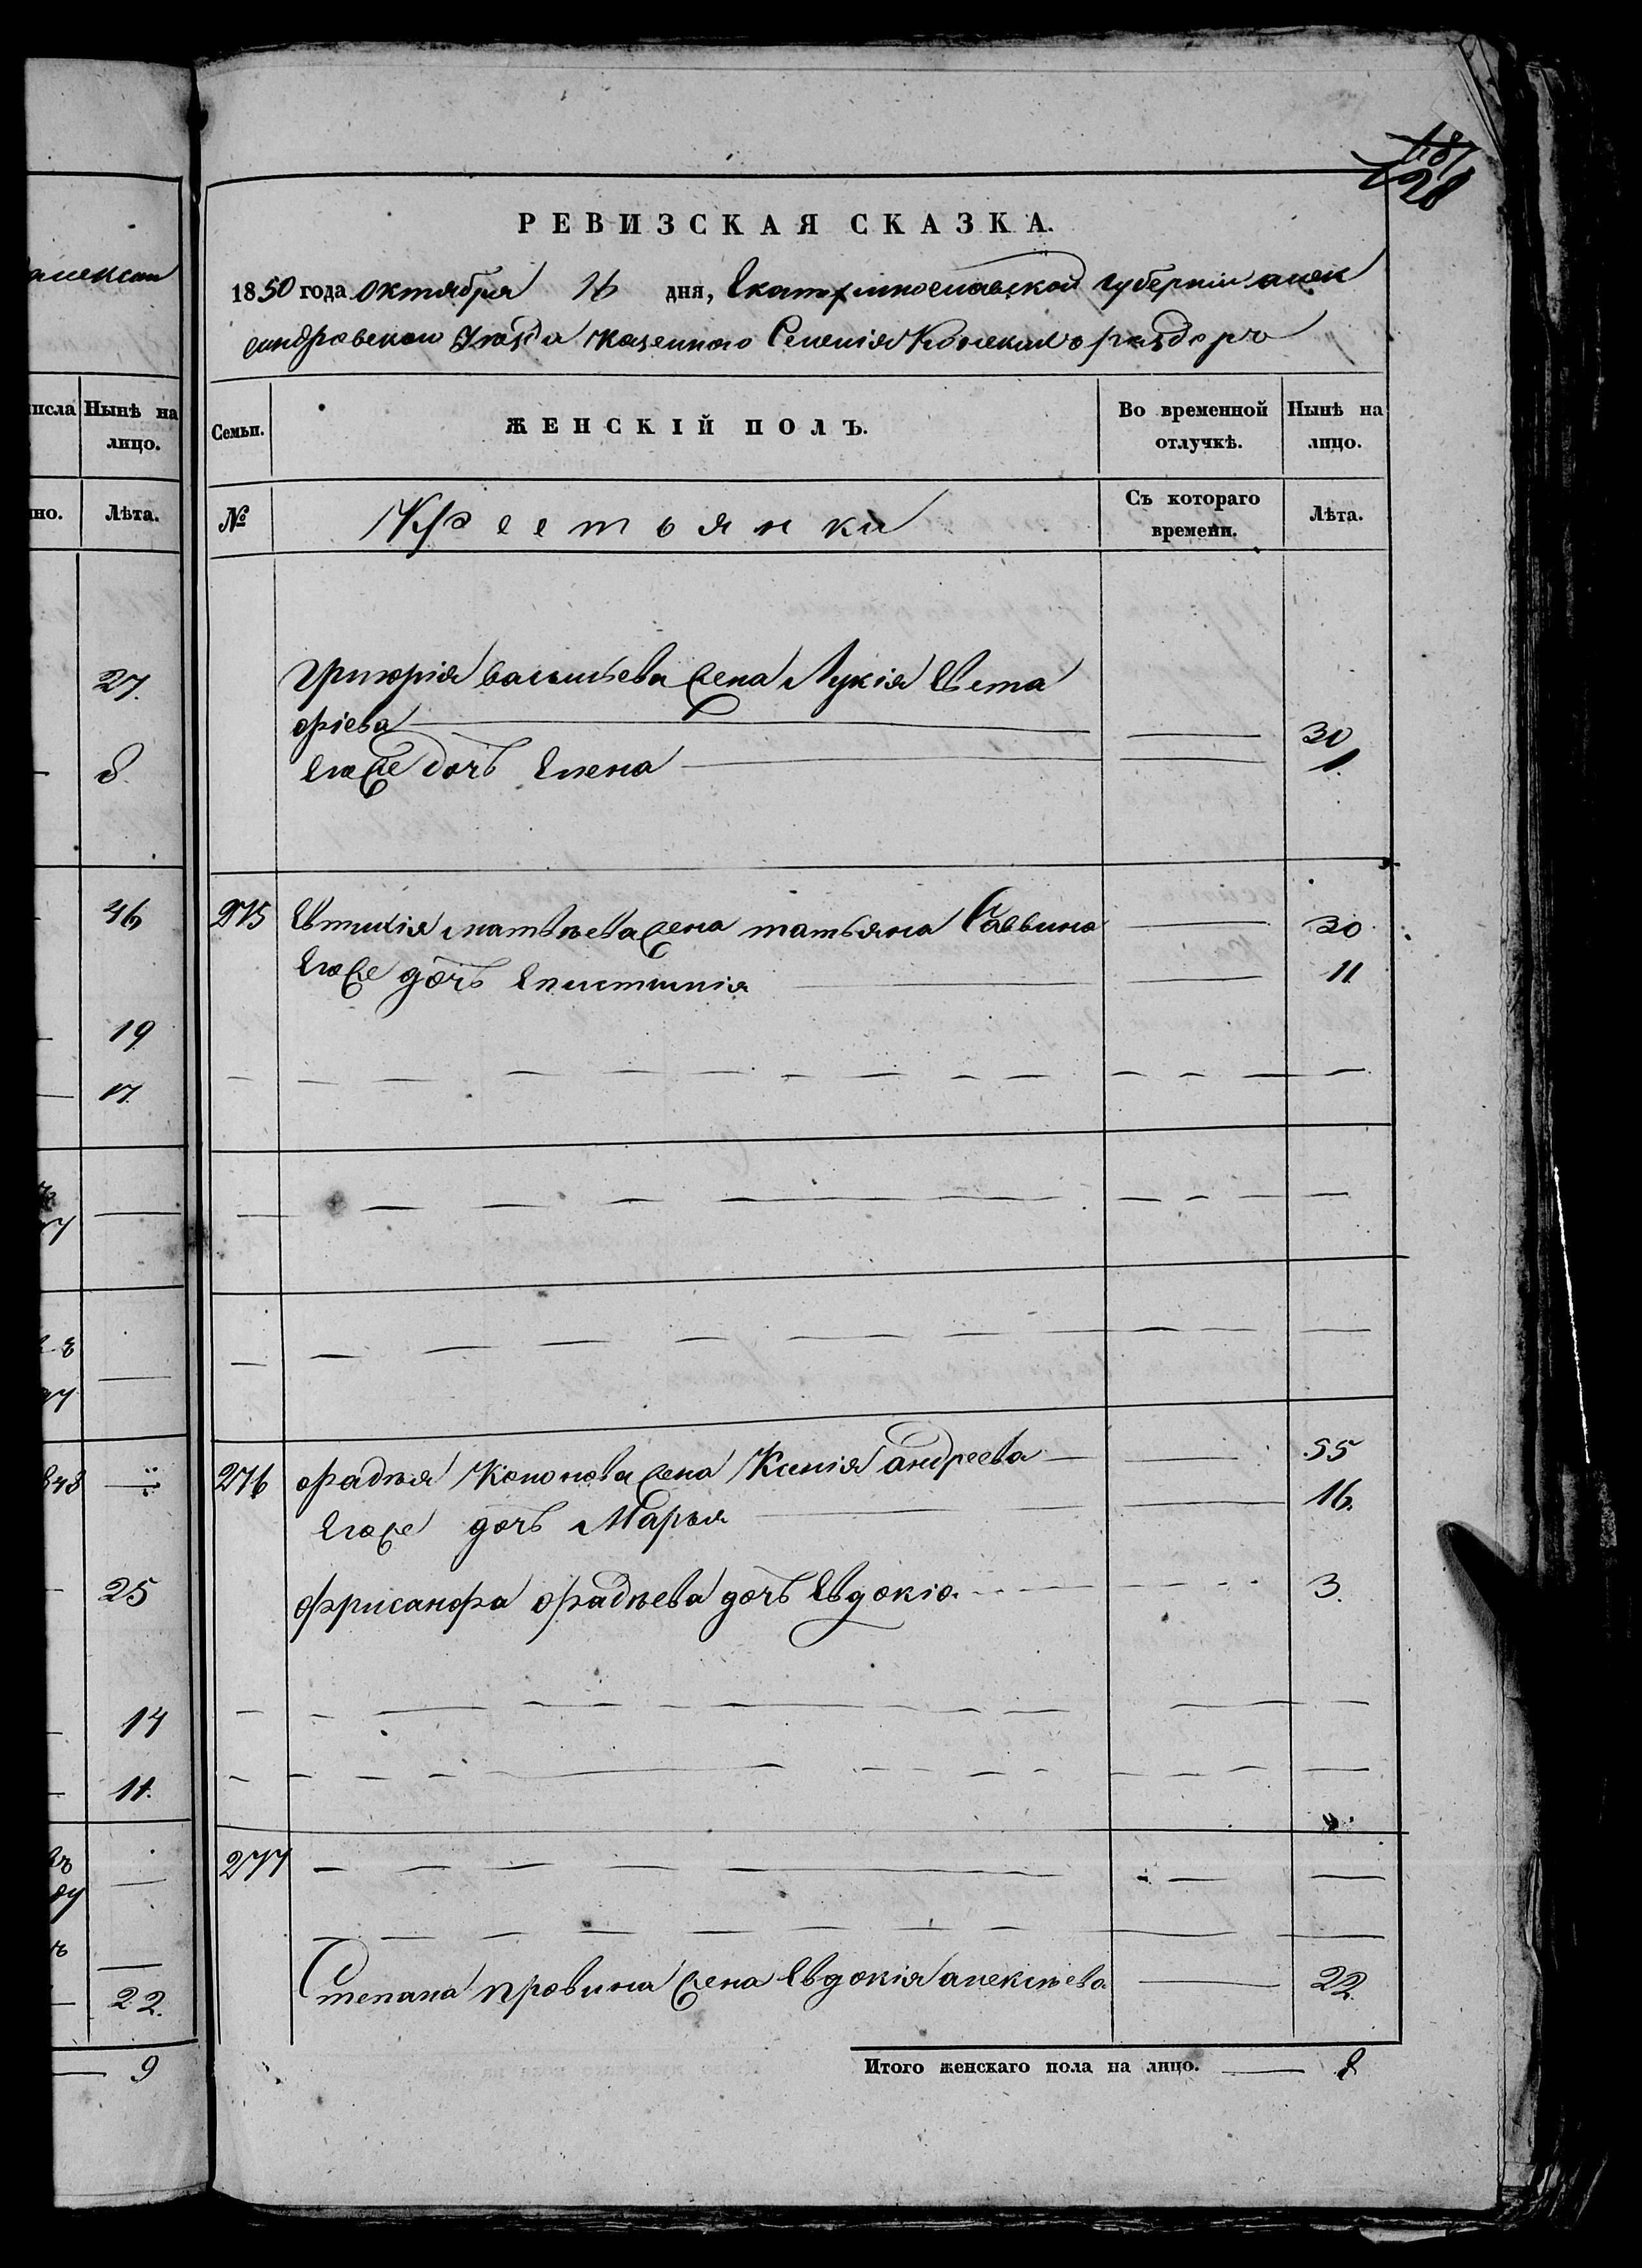 алексан
118
28
РЕВИЗСКАЯ СКАЗКА.
1850 года октября 16 дня, Екатеринославской губерніи алек
сандровскаго Уѣзда казеннаго Селенія Конскихъ раздоръ
числа
Нынѣ на
лицо.
Семьи.
ЖЕНСКІЙ ПОЛЪ.
Во временной
отлучкѣ.
Нынѣ на
лицо.
но.
Лѣта.
№
Крестьянки
Съ котораго
времени.
Лѣта.
27.
Григорія васильева жена Лукія Евста
фіева 30
8.
Егоже дочь Елена 1.
46
275 Евтихія матвѣева жена татьяна Саввина 30
Егоже дочь Епистимія 11
19
17.
848
276 фадѣя Кононова жена Ксенія андреева 55
Егоже дочь Марья 16.
25
фрисанфа фадѣева дочь Евдокія 3.
14
11.
277
22.
Степана провина жена Евдокія алексѣева 22.
9
Итого женскаго пола на лицо. 8